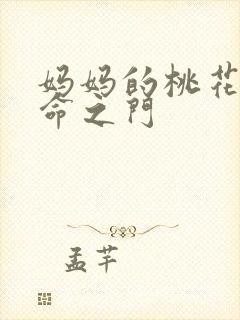 妈妈的桃花
命之门
孟芊